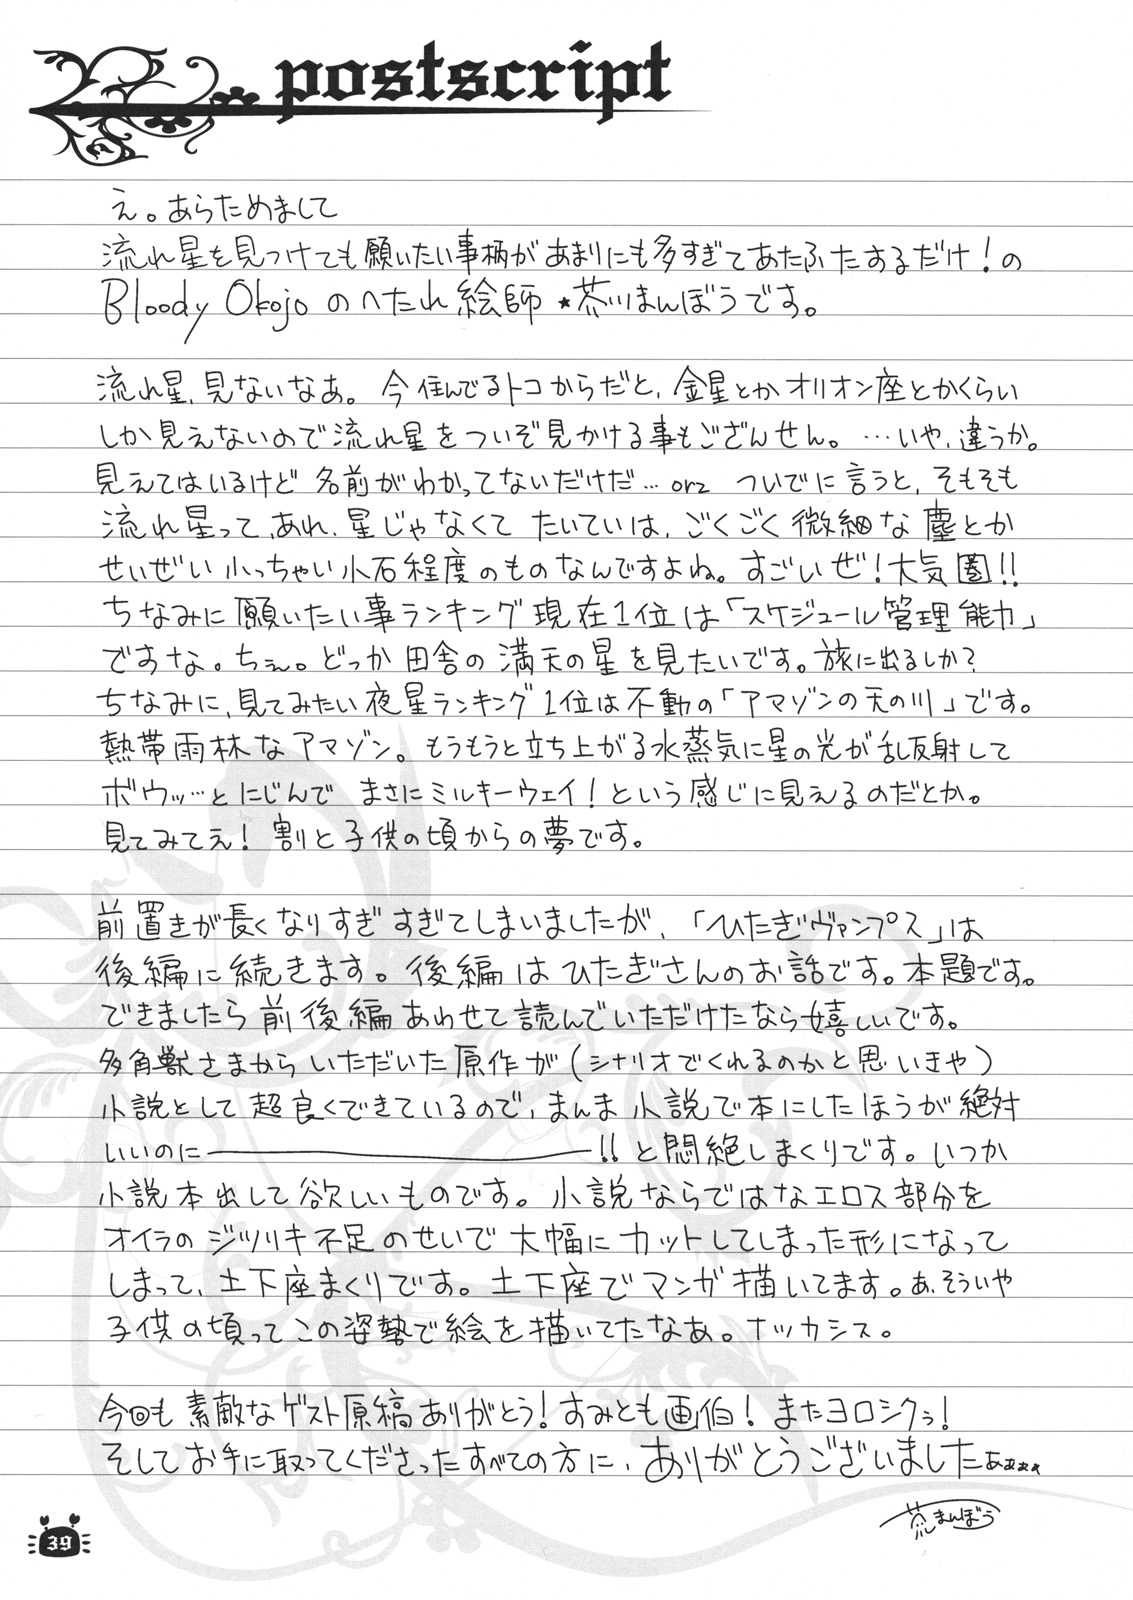 postscript
え。あらためまして
流れ星を見つけても願いたい事柄があまりにも多すぎてあたふたするだけ！の
Bloody Okojo のへたれ絵師★茶川まんぼうです。
流れ星、見ないなあ。今住んでるトコからだと、金星とかオリオン座とかくらい
しか見えないので流れ星をついぞ見かける事もござんせん。…いや、違うか。
見えてはいるけど名前がわかってないだけだ…orz ついでに言うと、そもそも
流れ星って、あれ、星じゃなくてたいていは、ごくごく微細な塵とか
せいぜい小っちゃい小石程度のものなんですよね。すごいぜ！大気圏!!
ちなみに願いたい事ランキング現在1位は「スケジュール管理能力」
ですな。ちぇ。どっか田舎の満天の星を見たいです。旅に出るしか？
ちなみに、見てみたい夜星ランキング1位は不動の「アマゾンの天の川」です。
熱帯雨林なアマゾン。もうもうと立ち上がる水蒸気に星の光が乱反射して
ボウッ…とにじんで まさにミルキーウェイ！という感じに見えるのだとか。
見てみてえ！割と子供の頃からの夢です。
前置きが長くなりすぎすぎてしまいましたが、「ひたぎヴァンプス」は
後編に続きます。後編はひたぎさんのお話です。本題です。
できましたら前後編あわせて読んでいただけたなら嬉しいです。
多角獣さまからいただいた原作が(シナリオでくれるのかと思いきや)
小説として超良くできているので、まんま小説で本にしたほうが絶対
いいのに――――――!!と悶絶しまくりです。いつか
小説本出して欲しいものです。小説ならではなエロス部分を
オイラのジツリキ不足のせいで大幅にカットしてしまった形になって
しまって、土下座まくりです。土下座でマンガ描いてます。あ、そういや
子供の頃ってこの姿勢で絵を描いてたなあ。ナツカシス。
今回も素敵なゲスト原稿ありがとう！すみとも画伯！またヨロシクぅ！
そしてお手に取ってくださったすべての方に、ありがとうございましたぁぁぁぁ
茶川まんぼう
39